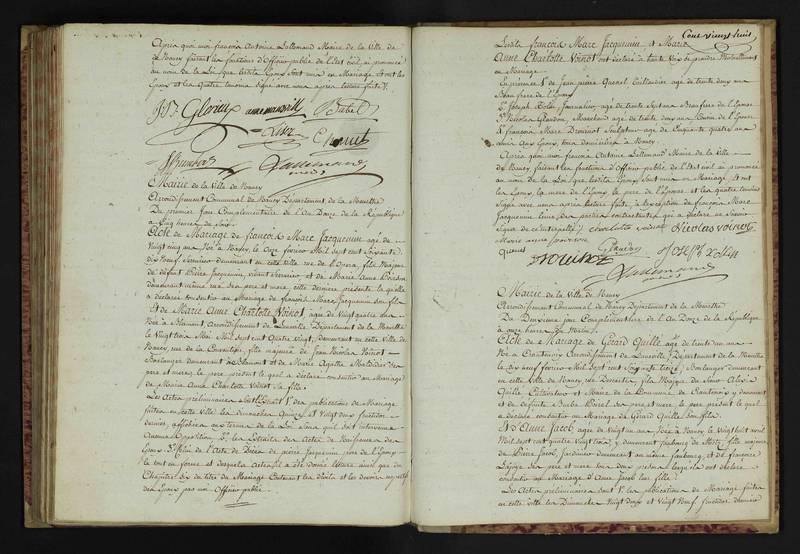 Après quoi moi françois Antoine Lallemand Maire de la Ville de
de Nancy faisant les fonctions d'Officier public de l'Etat Civil ai prononcé
au nom de la Loi que lesdits Epoux sont unis en Mariage et ont les
Epoux et les quatre témoins signé avec nous après lecture faite
Glorieux
Lallemand
Mairie de la Ville de Nancy
Arrondissement Communal de Nancy Département de la Meurthe
Du premier jour Complémentaire de l'An Douze de la République
à cinq heures du soir
Acte de Mariage de françois Marc Jacquemin agé de
Vingt cinq ans Né à Nancy, le Onze février Mil sept cent soixante
dix Neuf demeurant en cette ville rue de l'Opera, fils Majeur
de défunt Pierre Jacquemin, et de Marie Anne
demeurant même rue, ses pere et mere, cette derniere présente laquelle
a déclaré consentir au Mariage de françois Marc Jacquemin son fils
Et de Marie Anne Charlotte Voinot, agée de Vingt quatre ans
Née à Blamont, Arrondissement de Luneville, Département de la Meurthe
le Vingt trois Mai Mil Sept cent Quatre Vingt, demeurant en cette Ville de
Nancy, rue de la fille majeure de Jean Nicolas Voinot
Boulanger demeurant à Blamont et de Marie Agathe ses
pere et mere, le pere présent lequel a déclaré consentir au Mariage
de Marie Anne Charlotte Voinot sa fille.
Les Actes préliminaires sont 1° des publications de Mariage
faites en cette Ville les dimanches Quinze et Vingt deux fructidor
dernier, affichées aux termes de la Loi sans qu'il soit intervenu
Aucune Opposition 2° les Extraits des Actes de Naissance des
Epoux 3° Celui de l'Acte de Décès de pierre Jacquemin pere de l'Epoux
le tout en forme et desquels Actes il a été donné lecture ainsi que du
Chapitre six du titre du Mariage Contenant les droits et les devoirs respectifs
des Epoux par moi Officier public
Cent vingt huit
Lesdits françois Marc Jacquemin et Marie
Anne Charlotte Voinot ont déclaré à haute Voix se prendre Mutuellement
en Mariage
En présence 1° de Jean pierre Quenel agé de trente deux ans
Beau frere de l'Epoux
2° Joseph Colin Journalier, agé de trente sept ans Beau frere de l'Epouse
3° Nicolas Claudon, Marchand agé de trente deux ans Cousin de l'Epouse
4° françois Marc agé de Cinquante quatre ans
Amis des Epoux, tous domiciliés à Nancy.
Après quoi moi françois Antoine Lallemand Maire de la Ville
de Nancy faisant les fonctions d'Officier public de l'Etat Civil ai prononcé
au nom de la Loi que lesdits Epoux sont unis en Mariage. Et ont
les Epoux, la mere de l'Epoux, le pere de l'Epouse et les quatre témoins
Signé avec nous après lecture faite, à l'exception de françois Marc
Jacquemin l'une des parties contractantes qui a déclaré ne savoir
Signer de ce interpellé charlotte voinot Nicolas voinot
Claudon Joseph Colin
Quenel
Lallemand
Mairie de la Ville de Nancy
Arrondissement Communal de Nancy Département de la Meurthe
Du Deuxieme jour Complémentaire de l'An Douze de la République
à onze heures du Matin
Acte de Mariage de Gérard Quille agé de trente un ans
Né à Arrondissement de Luneville, Département de la Meurthe
le dix neuf février Mil Sept cent soixante treize, Boulanger demeurant
en cette Ville de Nancy, rue fils Majeur de
Quille et Maire de la Commune de y demeurant
et de défunte ses pere et mere, le pere présent lequel
a déclaré consentir au Mariage de Gérard Quille son fils.
Et d'Anne Jacob agée de Vingt un ans Née à Nancy le Vingt huit avril
Mil sept cent quatre Vingt trois, y demeurant faubourg de Metz, fille majeure
de Pierre Jacob, Jardinier demeurant au même faubourg, et de françoise
ses pere et mere tous deux présens lesquels ont déclaré
consentir au Mariage d'Anne Jacob leur fille
Les Actes préliminaires sont 1° les publications de Mariage faites
en cette Ville les Dimanches Vingt deux et Vingt Neuf fructidor dernier